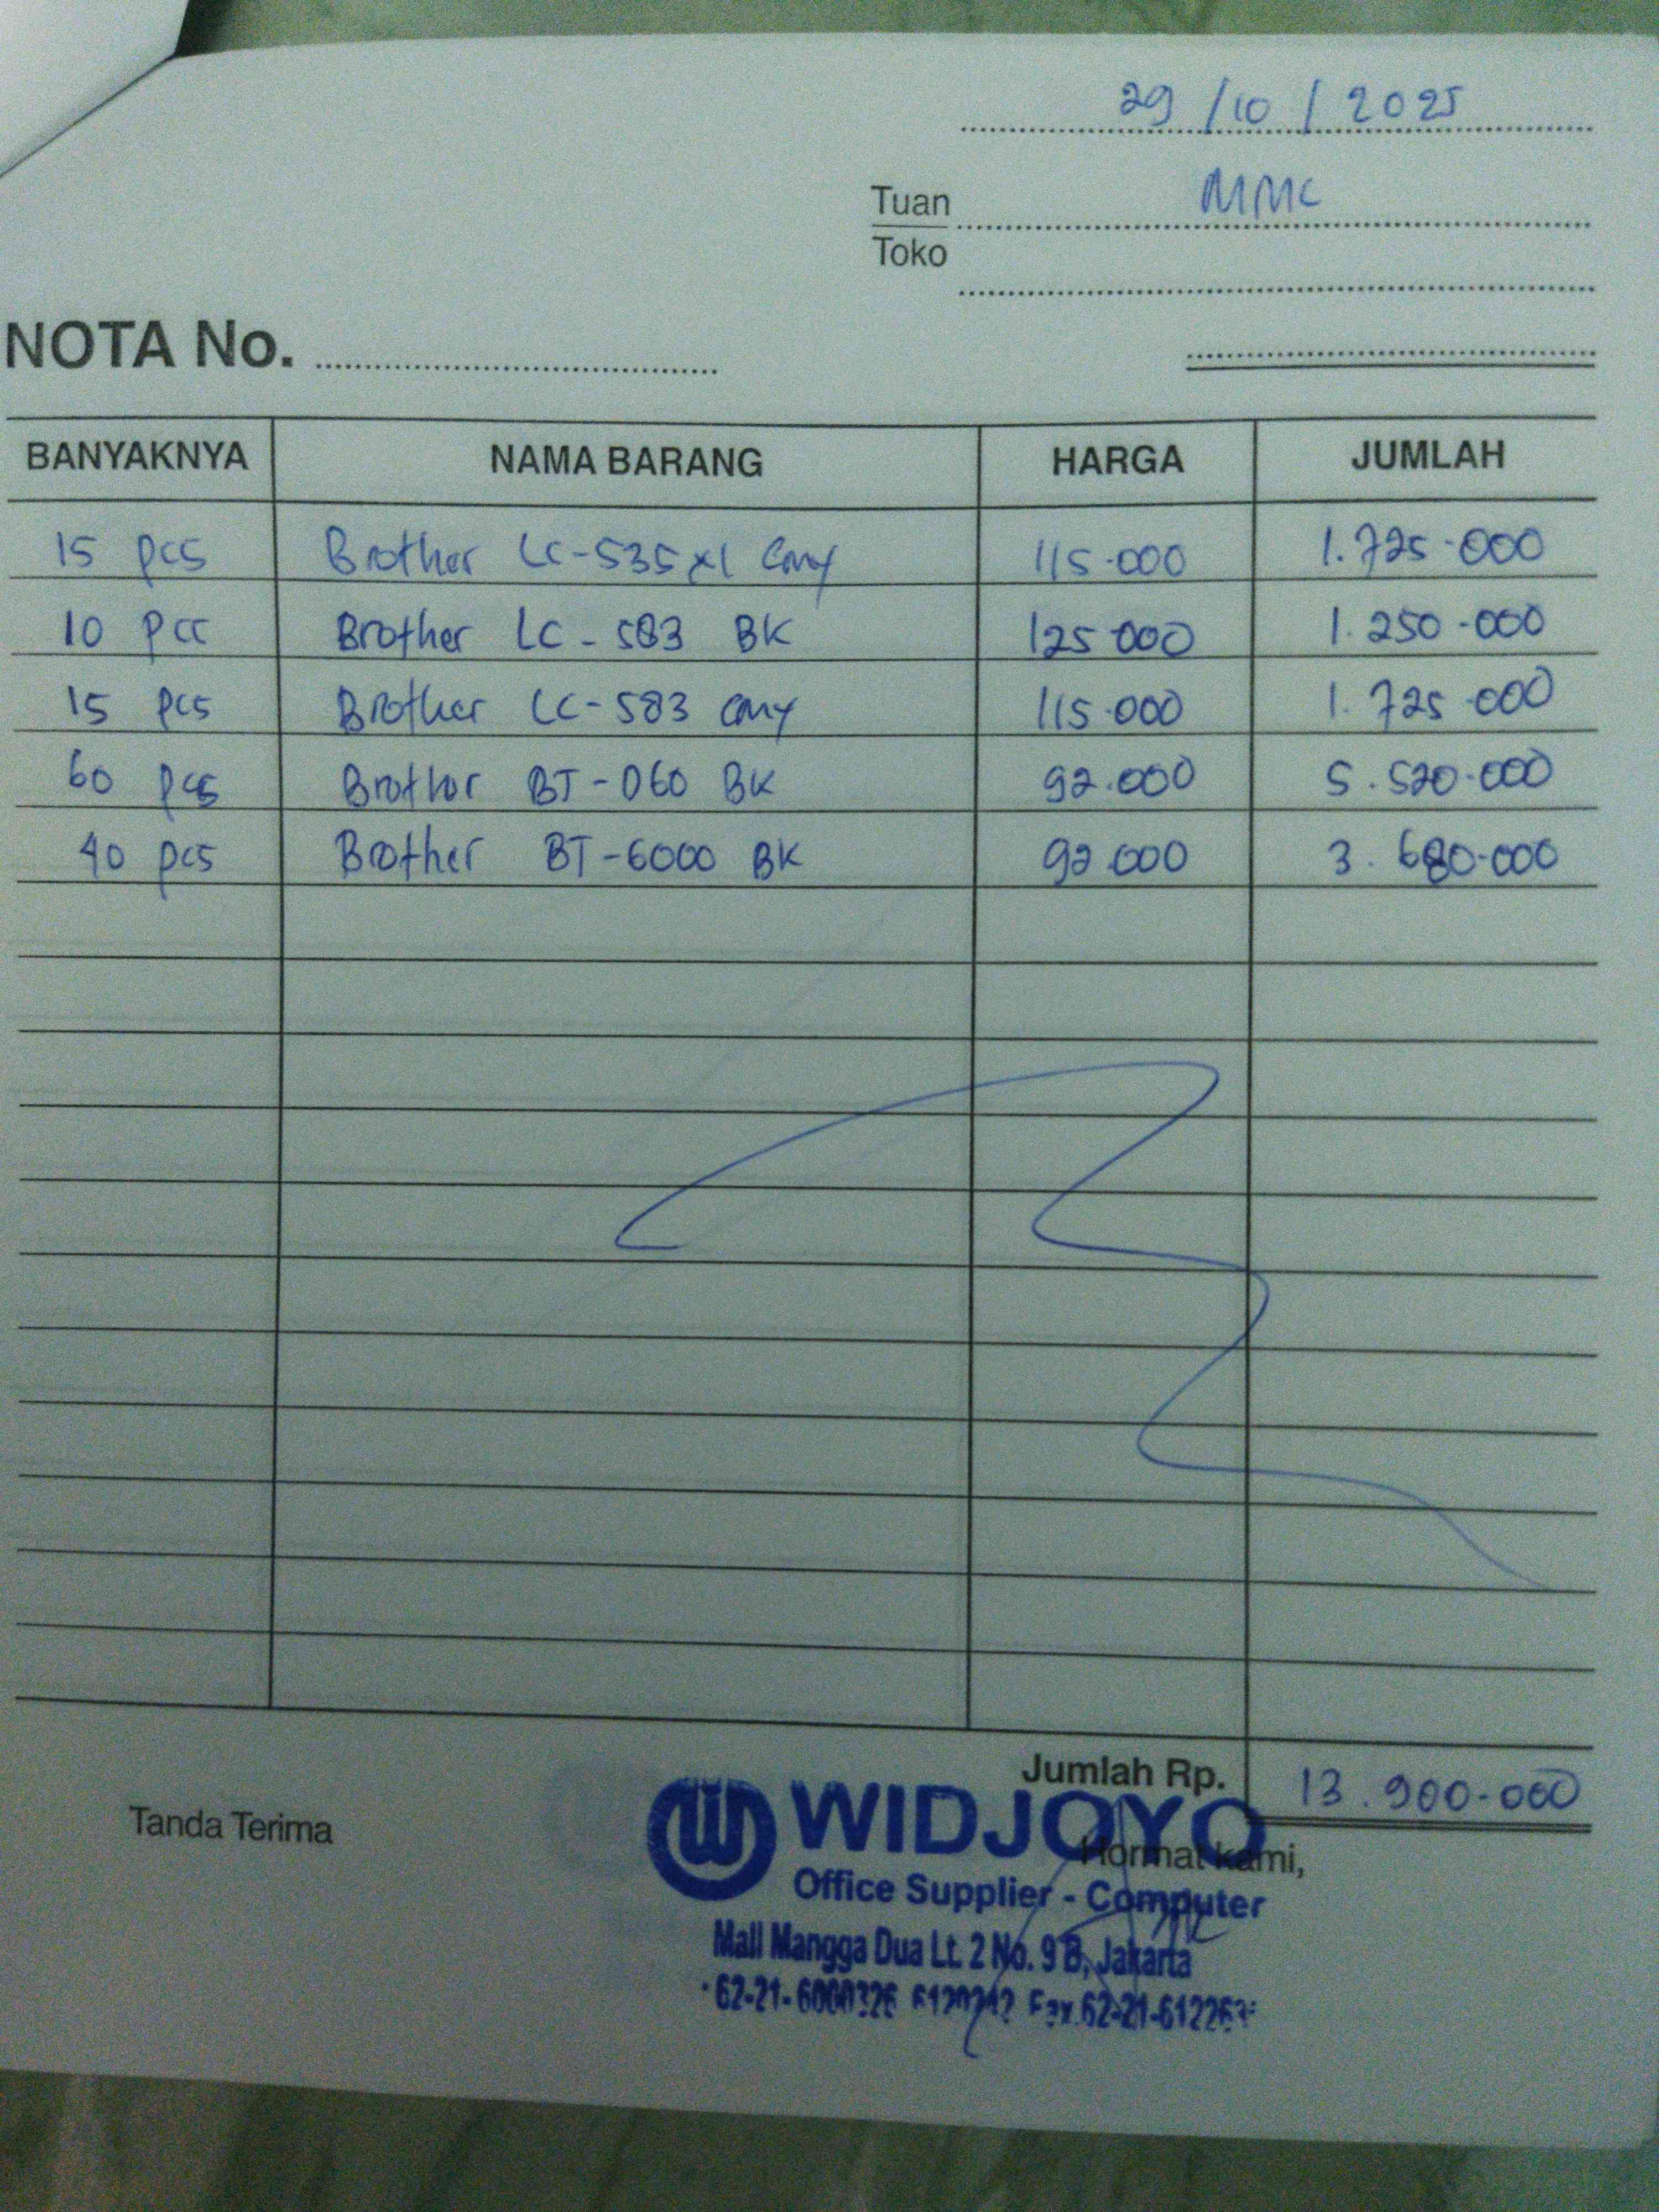 29/10/2025
Tuan MMC
Toko
NOTA No.
BANYAKNYA NAMA BARANG HARGA JUMLAH
15 pcs Brother LC-535 XL CMY 115.000 1.725.000
10 pcs Brother LC-583 BK 125.000 1.250.000
15 pcs Brother LC-583 CMY 115.000 1.725.000
60 pcs Brother BT-D60 BK 92.000 5.520.000
40 pcs Brother BT-6000 BK 92.000 3.680.000
Jumlah Rp. 13.900.000
Tanda Terima
WIDJOYO
Hormat kami,
Office Supplier - Computer
Mall Mangga Dua Lt. 2 No. 9 B, Jakarta
62-21- Fax.62-21-